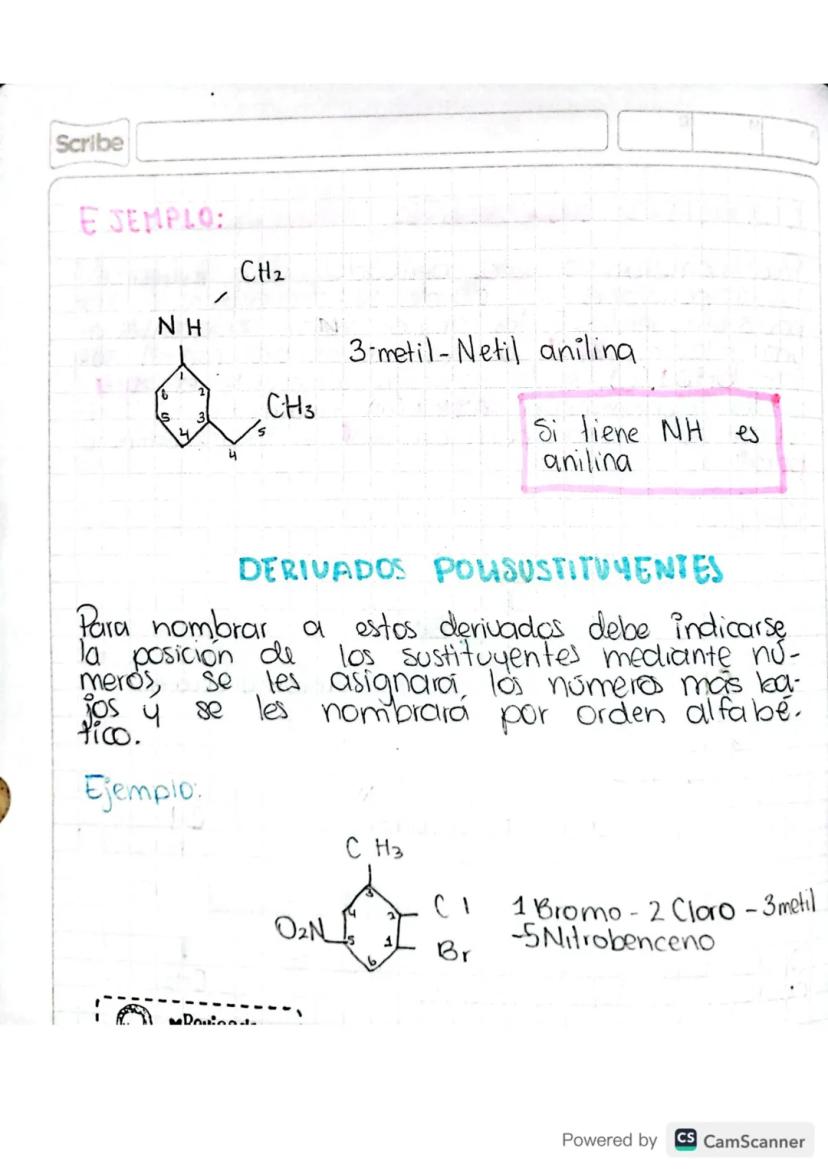 Scribe
EJEMPLO:
CH2
NH
3-metil-Netil anilina
1
6 2
5 3
4
CH3
5
4
Si tiene NH es
anilina
DERIVADOS POLISUSTITUYENTES
Para nombrar a estos derivados debe indicarse
la posición de los sustituyentes mediante nú-
meros, se les asignará los números más ba-
jos y se les nombrará por orden alfabé-
tico.
Ejemplo:
CH3
3
4 2
Cl
O2N
5 1
Br
6
1 Bromo - 2 Cloro - 3metil
-5Nitrobenceno
Powered by CS CamScanner